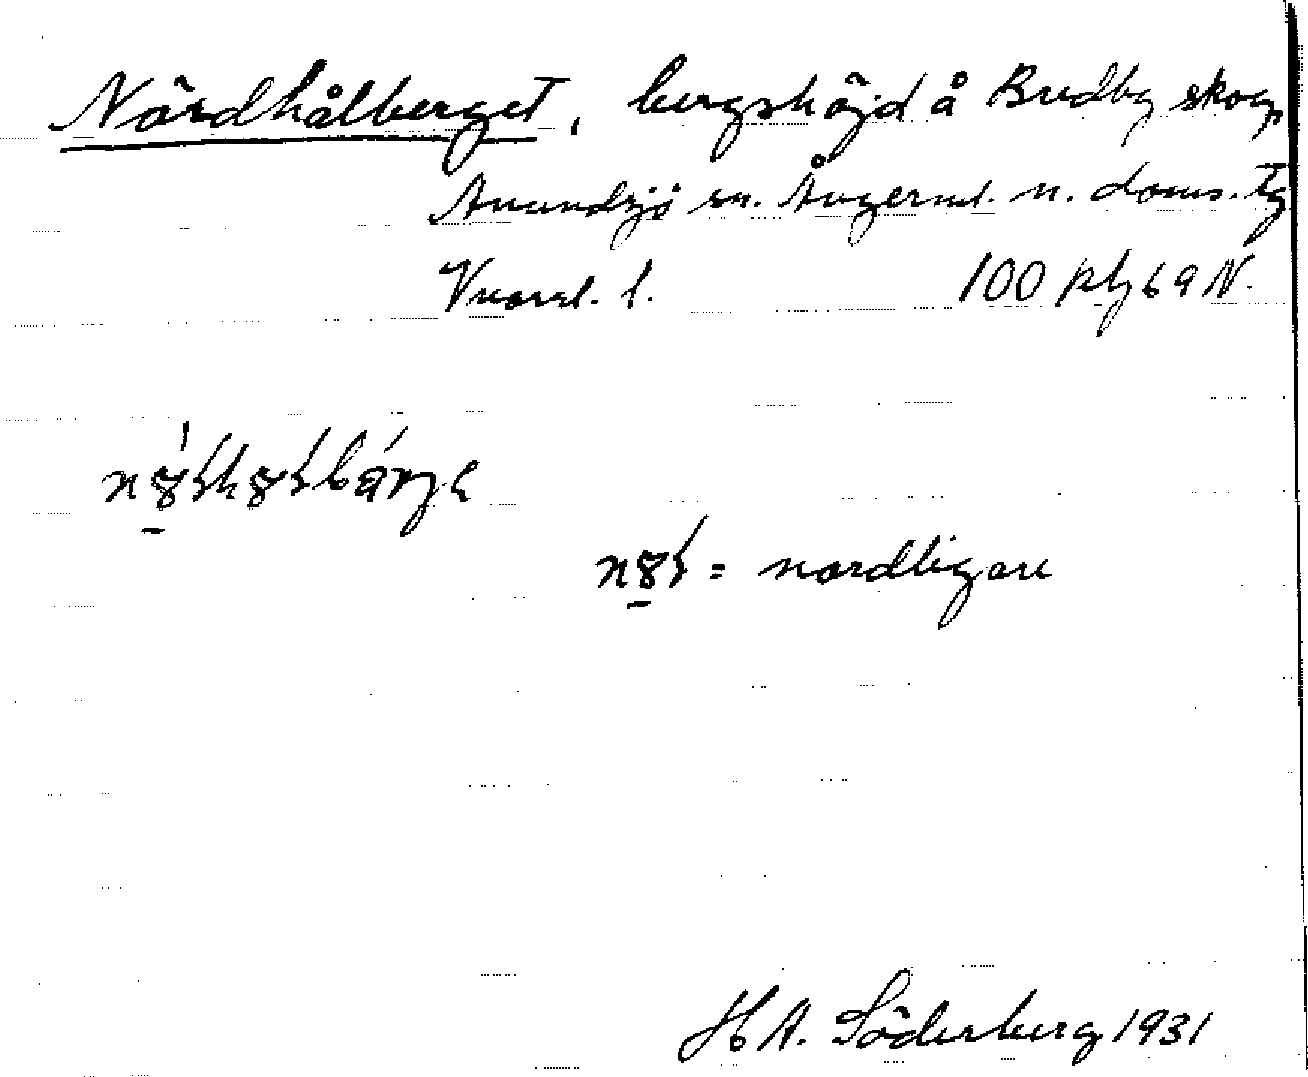 Nördhålberget, bergshöjd å Bredby skog,
Anundsjö sn. Ångerml. n. doms. tg
Vnorrl. l. 100 plg 69 N.
= nordligare
H A. Söderberg 1931